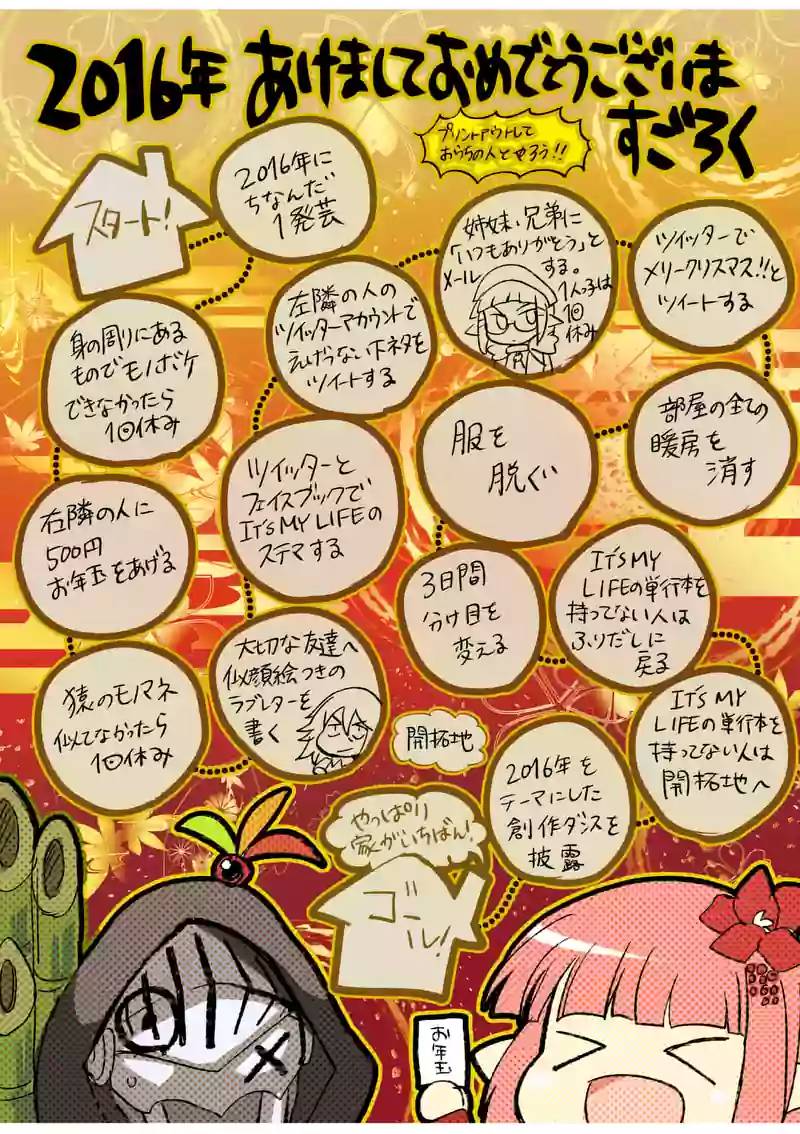 2016年 あけましておめでとうございま
すごろく
プリントアウトして
おうちの人とやろう!!
スタート!
2016年に
ちなんだ
1発芸
身の周りにある
ものでモノボケ
できなかったら
1回休み
右隣の人に
500円
お年玉をあげる
猿のモノマネ
似てなかったら
1回休み
大切な友達へ
似顔絵つきの
ラブレターを
書く
ツイッターと
フェイスブックで
IT'S MY LIFEの
ステマする
左隣の人の
ツイッターアカウントで
えげつない下ネタを
ツイートする
姉妹、兄弟に
「いつもありがとう」と
メール
する。
1人っ子は
1回
休み
ツイッターで
メリークリスマス!!と
ツイートする
部屋の全ての
暖房を
消す
服を
脱ぐ
3日間
分け目を
変える
IT'S MY
LIFEの単行本を
持ってない人は
ふりだしに
戻る
IT'S MY
LIFEの単行本を
持ってない人は
開拓地へ
開拓地
2016年を
テーマにした
創作ダンスを
披露
やっぱり
家がいちばん!
ゴール!
お年玉